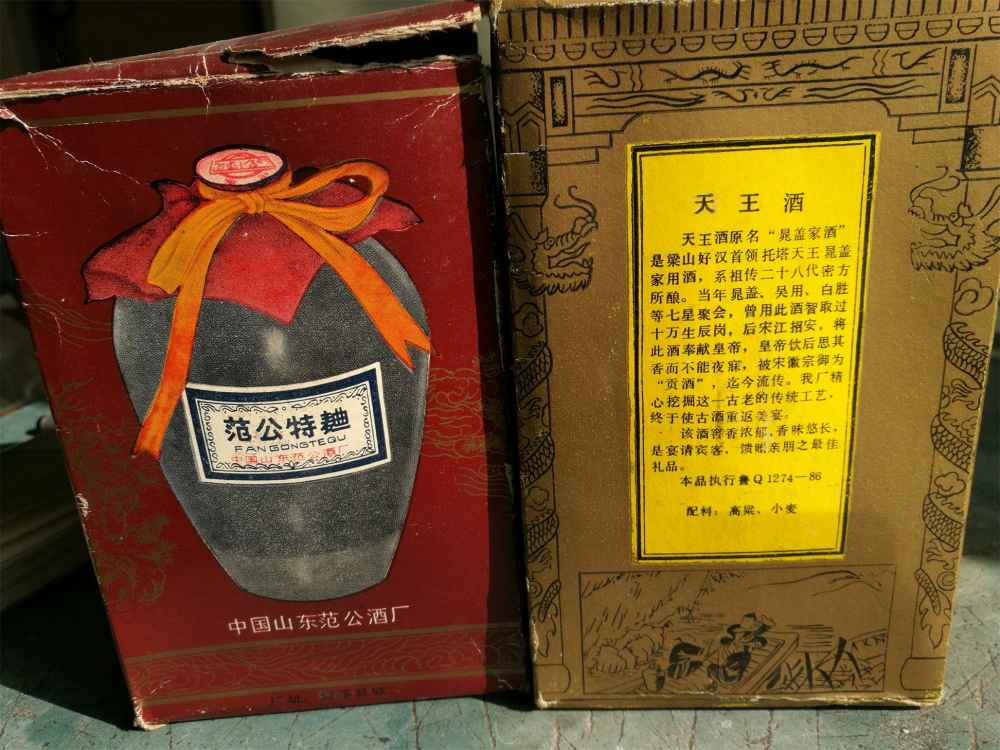 范公特麯
FANGONGTEQU
中国山东范公酒厂
中国山东范公酒厂
厂址
天王酒
天王酒原名“晁盖家酒”
是梁山好汉首领托塔天王晁盖
家用酒，系祖传二十八代密方
所酿。当年晁盖、吴用、白胜
等七星聚会，曾用此酒智取过
十万生辰岗，后宋江招安，将
此酒奉献皇帝，皇帝饮后思其
香而不能夜寐，被宋徽宗御为
“贡酒”，迄今流传。我厂精
心挖掘这一古老的传统工艺，
终于使古酒重返美宴。
该酒窖香浓郁，香味悠长，
是宴请宾客、馈赠亲朋之最佳
礼品。
本品执行鲁Q1274—86
配料：高粱、小麦